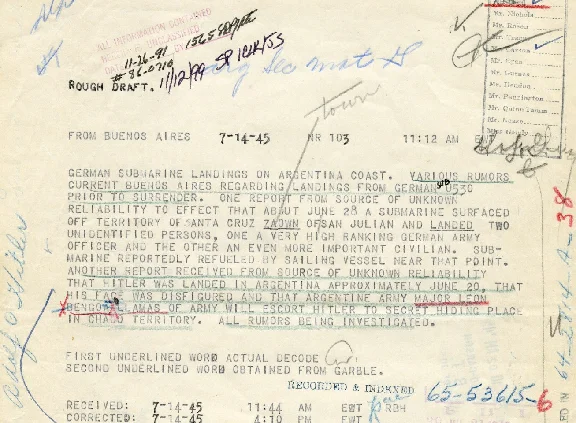 ALL INFORMATION CONTAINED
11-26-91
# 86-0710
11/12/99
Sec
ROUGH DRAFT.
Mr. Nichols
Mr. Rosen
Mr. Tracy
Mr. Carson
Mr. Egan
Mr. Hendon
Mr. Pennington
Mr. Quinn Tamm
Mr. Nease
town
FROM BUENOS AIRES 7-14-45 NR 103 11:12 AM
GERMAN SUBMARINE LANDINGS ON ARGENTINA COAST. VARIOUS RUMORS
CURRENT BUENOS AIRES REGARDING LANDINGS FROM GERMAN U530
PRIOR TO SURRENDER. ONE REPORT FROM SOURCE OF UNKNOWN
RELIABILITY TO EFFECT THAT ABOUT JUNE 28 A SUBMARINE SURFACED
OFF TERRITORY OF SANTA CRUZ ZAOWN OFSAN JULIAN AND LANDED TWO
UNIDENTIFIED PERSONS, ONE A VERY HIGH RANKING GERMAN ARMY
OFFICER AND THE OTHER AN EVEN MORE IMPORTANT CIVILIAN. SUB-
MARINE REPORTEDLY REFUELED BY SAILING VESSEL NEAR THAT POINT.
ANOTHER REPORT RECEIVED FROM SOURCE OF UNKNOWN RELIABILITY
THAT HITLER WAS LANDED IN ARGENTINA APPROXIMATELY JUNE 20, THAT
HIS FACE WAS DISFIGURED AND THAT ARGENTINE ARMY MAJOR LEON
BENGOA LLAMAS OF ARMY WILL ESCORT HITLER TO SECRET HIDING PLACE
IN CHACO TERRITORY. ALL RUMORS BEING INVESTIGATED.
FIRST UNDERLINED WORD ACTUAL DECODE
SECOND UNDERLINED WORD OBTAINED FROM GARBLE.
RECORDED & INDEXED 65-53615-6
RECEIVED: 7-14-45 11:44 AM EWT RBH
CORRECTED: 7-14-45 4:10 PM EWT
Adolf Hitler
64-2114-A-38